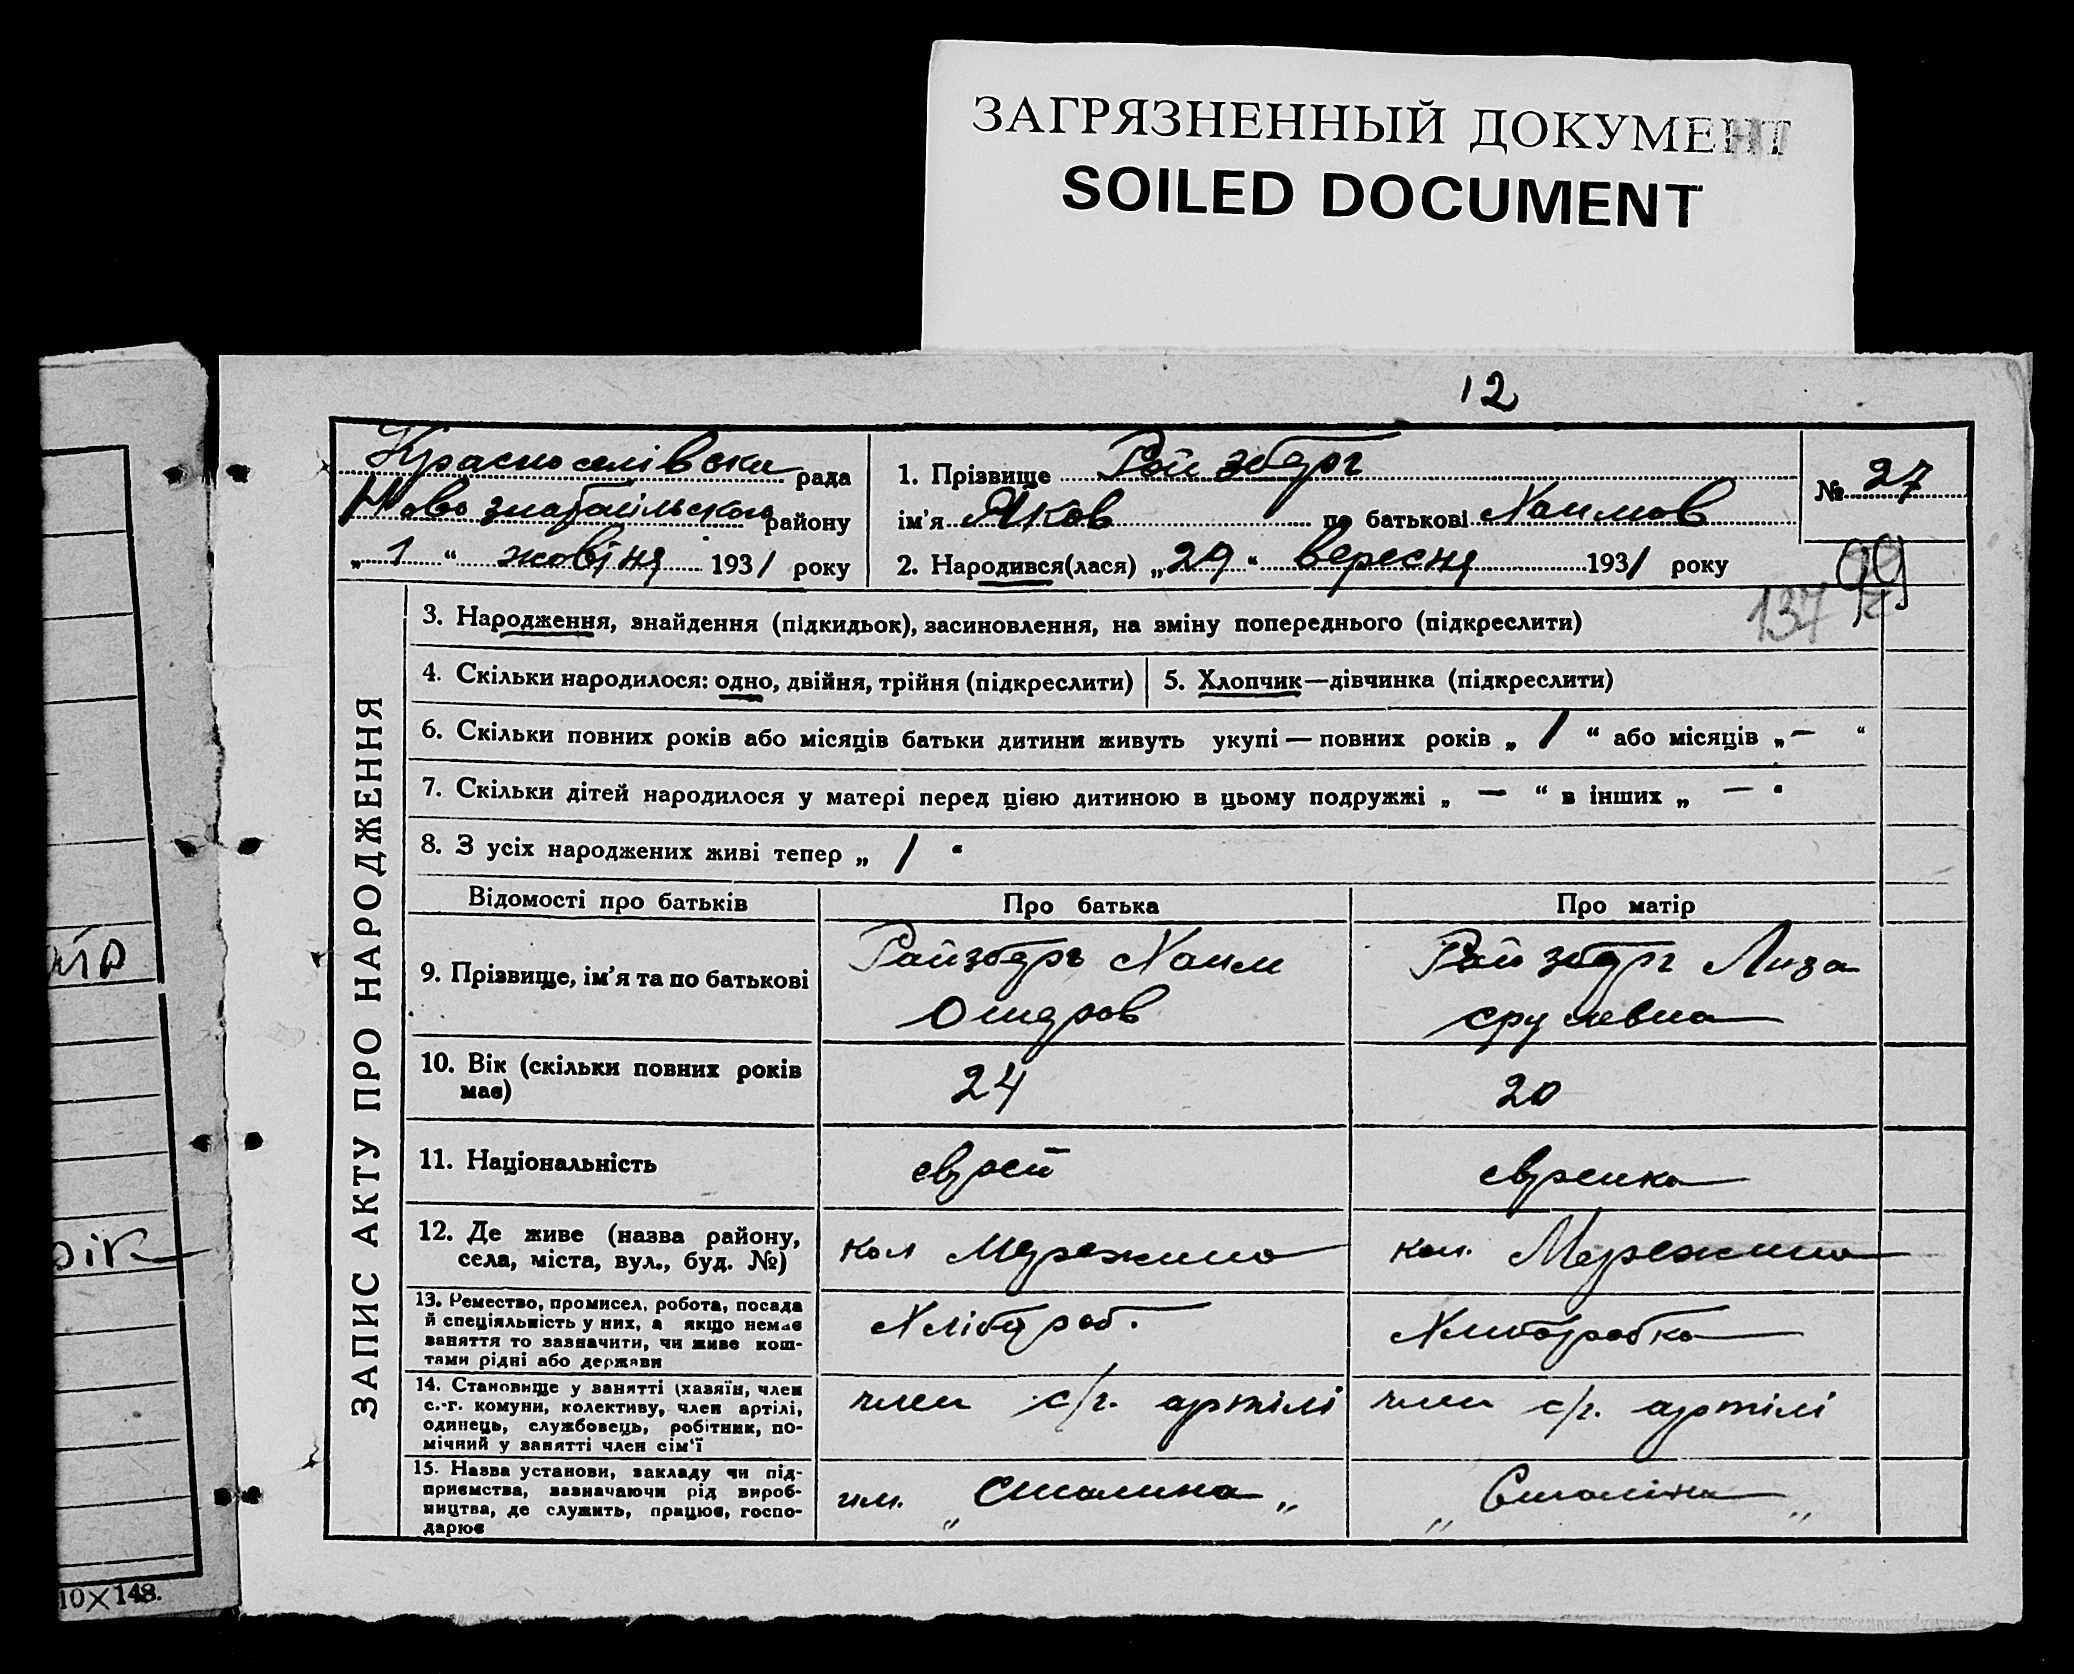 ЗАГРЯЗНЕННЫЙ ДОКУМЕНТ
SOILED DOCUMENT
12
Красноселівська рада
районy
„ 1 “ жовтня 1931 року
1. Прізвище Райзберг
ім'я Яков по батькові Хаимов
2. Народився(лася) „ 29 “ вересня 1931 року
№ 27
99
137
ЗАПИС АКТУ ПРО НАРОДЖЕННЯ
3. Народження, знайдення (підкидьок), засиновлення, на зміну попереднього (підкреслити)
4. Скільки народилося: одно, двійня, трійня (підкреслити)
5. Хлопчик—дівчинка (підкреслити)
6. Скільки повних років або місяців батьки дитини живуть укупі — повних років „ 1 “ або місяців „ — “
7. Скільки дітей народилося у матері перед цією дитиною в цьому подружжі „ — “ в інших „ — “
8. З усіх народжених живі тепер „ 1 “
Відомості про батьків Про батька Про матір
9. Прізвище, ім'я та по батькові
Райзберг Хаим
Ошеров
Райзберг Лиза
Срулевна
10. Вік (скільки повних років
має)
24
20
11. Національність
еврей
еврейка
12. Де живе (назва району,
села, міста, вул., буд. №)
кол Мережино
кол. Мережино
13. Ремество, промисел, робота, посада
й спеціяльність у них, а якщо немає
заняття то зазначити, чи живе кош-
тами рідні або держави
Хлібороб.
Хлиборобка
14. Становище у занятті (хазяїн, член
с.-г. комуни, колективу, член артілі,
одинець, службовець, робітник, по-
мічний у занятті член сім'ї
член с/г. артілі
член с/г. артілі
15. Назва установи, закладу чи під-
приємства, зазначаючи рід вироб-
ництва, де служить, працює, госпо-
дарює
им. „Сталина„
„Сталіна„
рік
10×148.